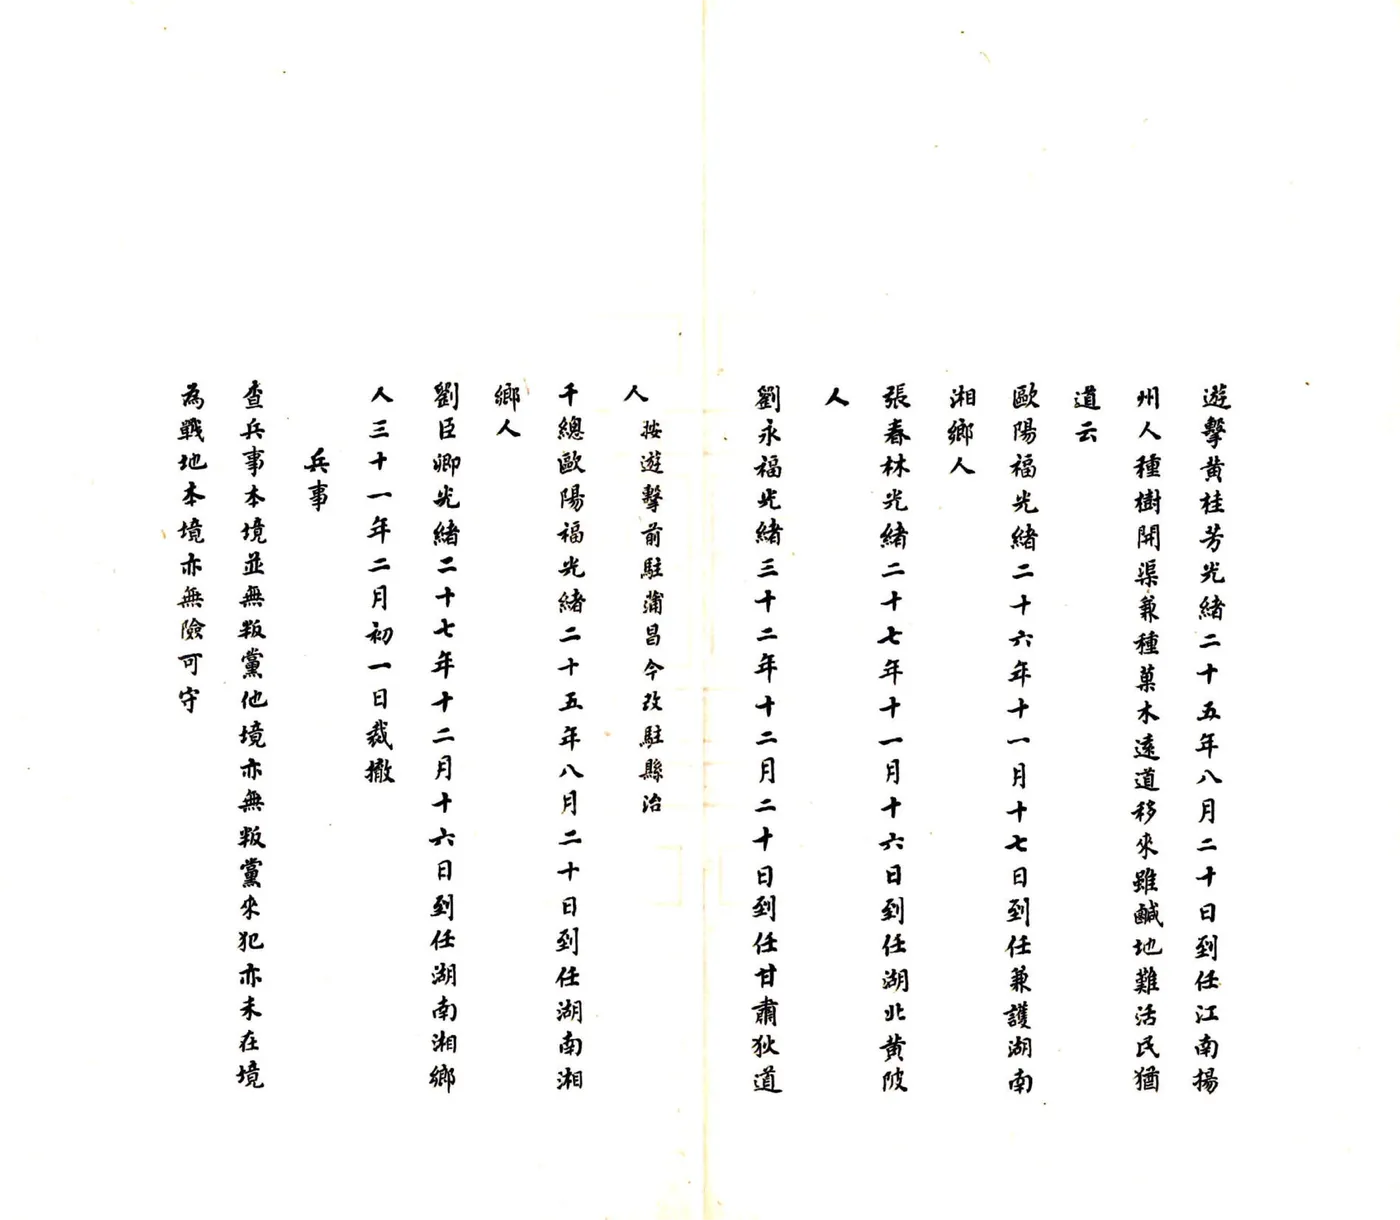 遊擊黄桂芳光緒二十五年八月二十日到任江南揚
州人種樹開渠兼種菓木遠道移來雖鹹地難活民猶
道云
歐陽福光緒二十六年十一月十七日到任兼護湖南
湘鄉人
張春林光緒二十七年十一月十六日到任湖北黄陂
人
劉永福光緒三十二年十二月二十日到任甘肅狄道
人 按遊擊前駐蒲昌今改駐縣治
千總歐陽福光緒二十五年八月二十日到任湖南湘
鄉人
劉臣卿光緒二十七年十二月十六日到任湖南湘鄉
人三十一年二月初一日裁撤
兵事
查兵事本境並無叛黨他境亦無叛黨來犯亦未在境
為戰地本境亦無險可守